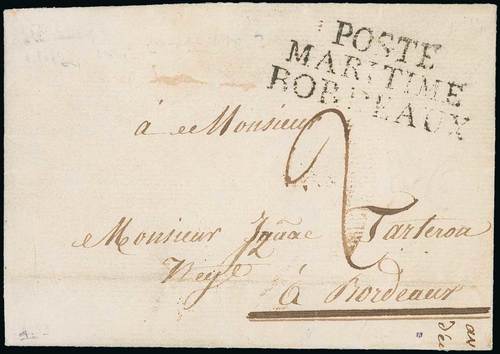 POSTE
MARITIME
BORDEAUX
à Monsieur
2
Monsieur Tarteron
à Bordeaux